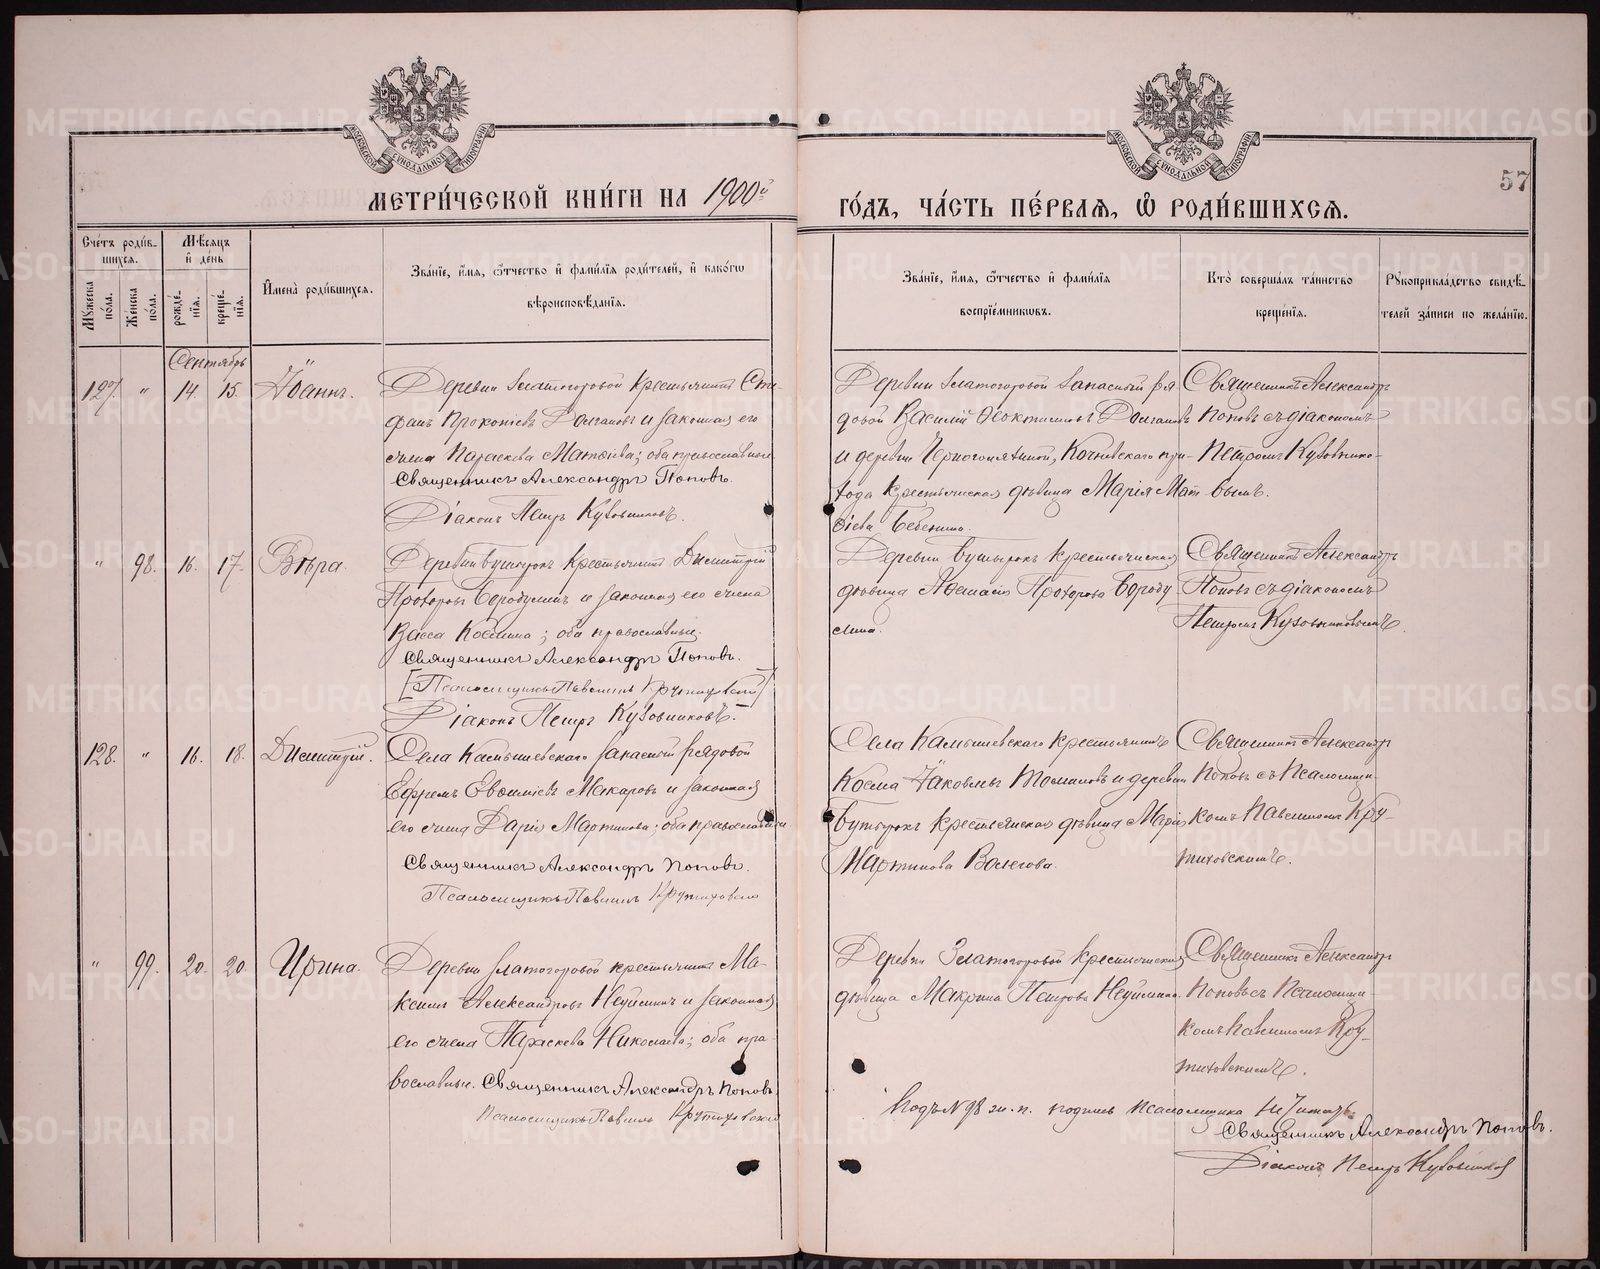 МОСКОВСКОЙ СУНОДАЛЬНОЙ ТИПОГРАФІИ
МОСКОВСКОЙ СУНОДАЛЬНОЙ ТИПОГРАФІИ
57
МЕТРИ́ЧЕСКОЙ КНИ́ГИ НА 1900й
ГО́ДЪ, ЧА́СТЬ ПЕ́РВАѦ, Ѡ҆ РОДИ́ВШИХСѦ.
Сче́тъ роди́в-
шихсѧ.
Мѣ́сѧцъ
и҆ де́нь
Мꙋ́жеска по́ла.
Же́нска по́ла.
рожде́-нїѧ.
креще́-нїѧ.
И҆мена̀ роди́вшихсѧ.
Зва́нїе, и҆́мѧ, ѻ҆́тчество и҆ фами́лїѧ роди́телей, и҆ како́гѡ
вѣроисповѣ́данїѧ.
Зва́нїе, и҆́мѧ, ѻ҆́тчество и҆ фами́лїѧ
воспрїе́мникѡвъ.
Кто̀ соверша́лъ та́инство
креще́нїѧ.
Рꙋкоприкла́дство свидѣ́-
телей за́писи по жела́нїю.
Сентябрь
127. " 14. 15. Іоаннъ.
Деревни Златогоровой крестьянинъ Сте-
фанъ Прокопіевъ Долгановъ и законная его
жена Параскева Матѳіева; оба православные
Священникъ Александръ Поповъ.
Діаконъ Петръ Кузовниковъ.
Деревни Златогоровой запасный ря
довой Василій Ѳеоктистовъ Долгановъ
и деревни Черноголовиной, Кочневскаго при-
хода крестьянская дѣвица Марія Мат
ѳіева
Священникъ Александръ
Поповъ съ діакономъ
Петромъ Кузовнико-
вымъ.
" 98. 16. 17. Вѣра.
Деревни Бутырокъ крестьянинъ Димитрій
Прохоровъ Бородулинъ и законная его жена
Васса Козмина; оба православные.
Священникъ Александръ Поповъ.
[Псаломщикъ Павелинъ Крутиховскій]
Діаконъ Петръ Кузовниковъ.
Деревни Бутырокъ крестьянская
дѣвица Аѳанасія Прохорова Бороду
лина.
Священникъ Александръ
Поповъ съ діакономъ
Петромъ Кузовниковымъ.
128. " 16. 18. Димитрій.
Села Камышевскаго запасный рядовой
Ефремъ Евѳиміевъ Макаровъ и законная
его жена Дарія Мартинова; оба православные.
Священникъ Александръ Поповъ.
Псаломщикъ Павелинъ Крутиховскій
Села Камышевскаго крестьянинъ
Козма Іаковлевъ Томиловъ и деревни
Бутырокъ крестьянская дѣвица Марія
Мартинова
Священникъ Александръ
Поповъ съ псаломщи-
комъ Павелиномъ Кру-
тиховскимъ.
" 99. 20. 20. Ирина.
Деревни Златогоровой крестьянинъ Ма-
ксимъ Александровъ Неуйминъ и законная
его жена Параскева Николаева; оба пра-
вославные. Священникъ Александръ Поповъ.
Псаломщикъ Павелинъ Крутиховскій
Деревни Златогоровой крестьянская
дѣвица Макрина Петрова Неуймина.
Священникъ Александръ
Поповъ съ псаломщи-
комъ Павелиномъ Кру-
тиховскимъ.
Подъ № 98 ж. п. подпись псаломщика не читать.
Священникъ Александръ Поповъ.
Діаконъ Петръ Кузовниковъ
METRIKI.GASO-URAL.RU